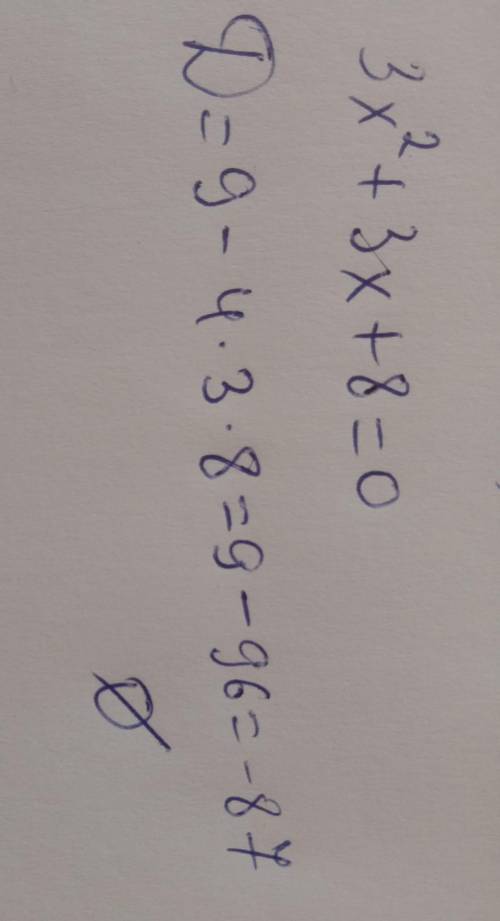 3x² + 3x + 8 = 0
D = 9 - 4 · 3 · 8 = 9 - 96 = -87
∅